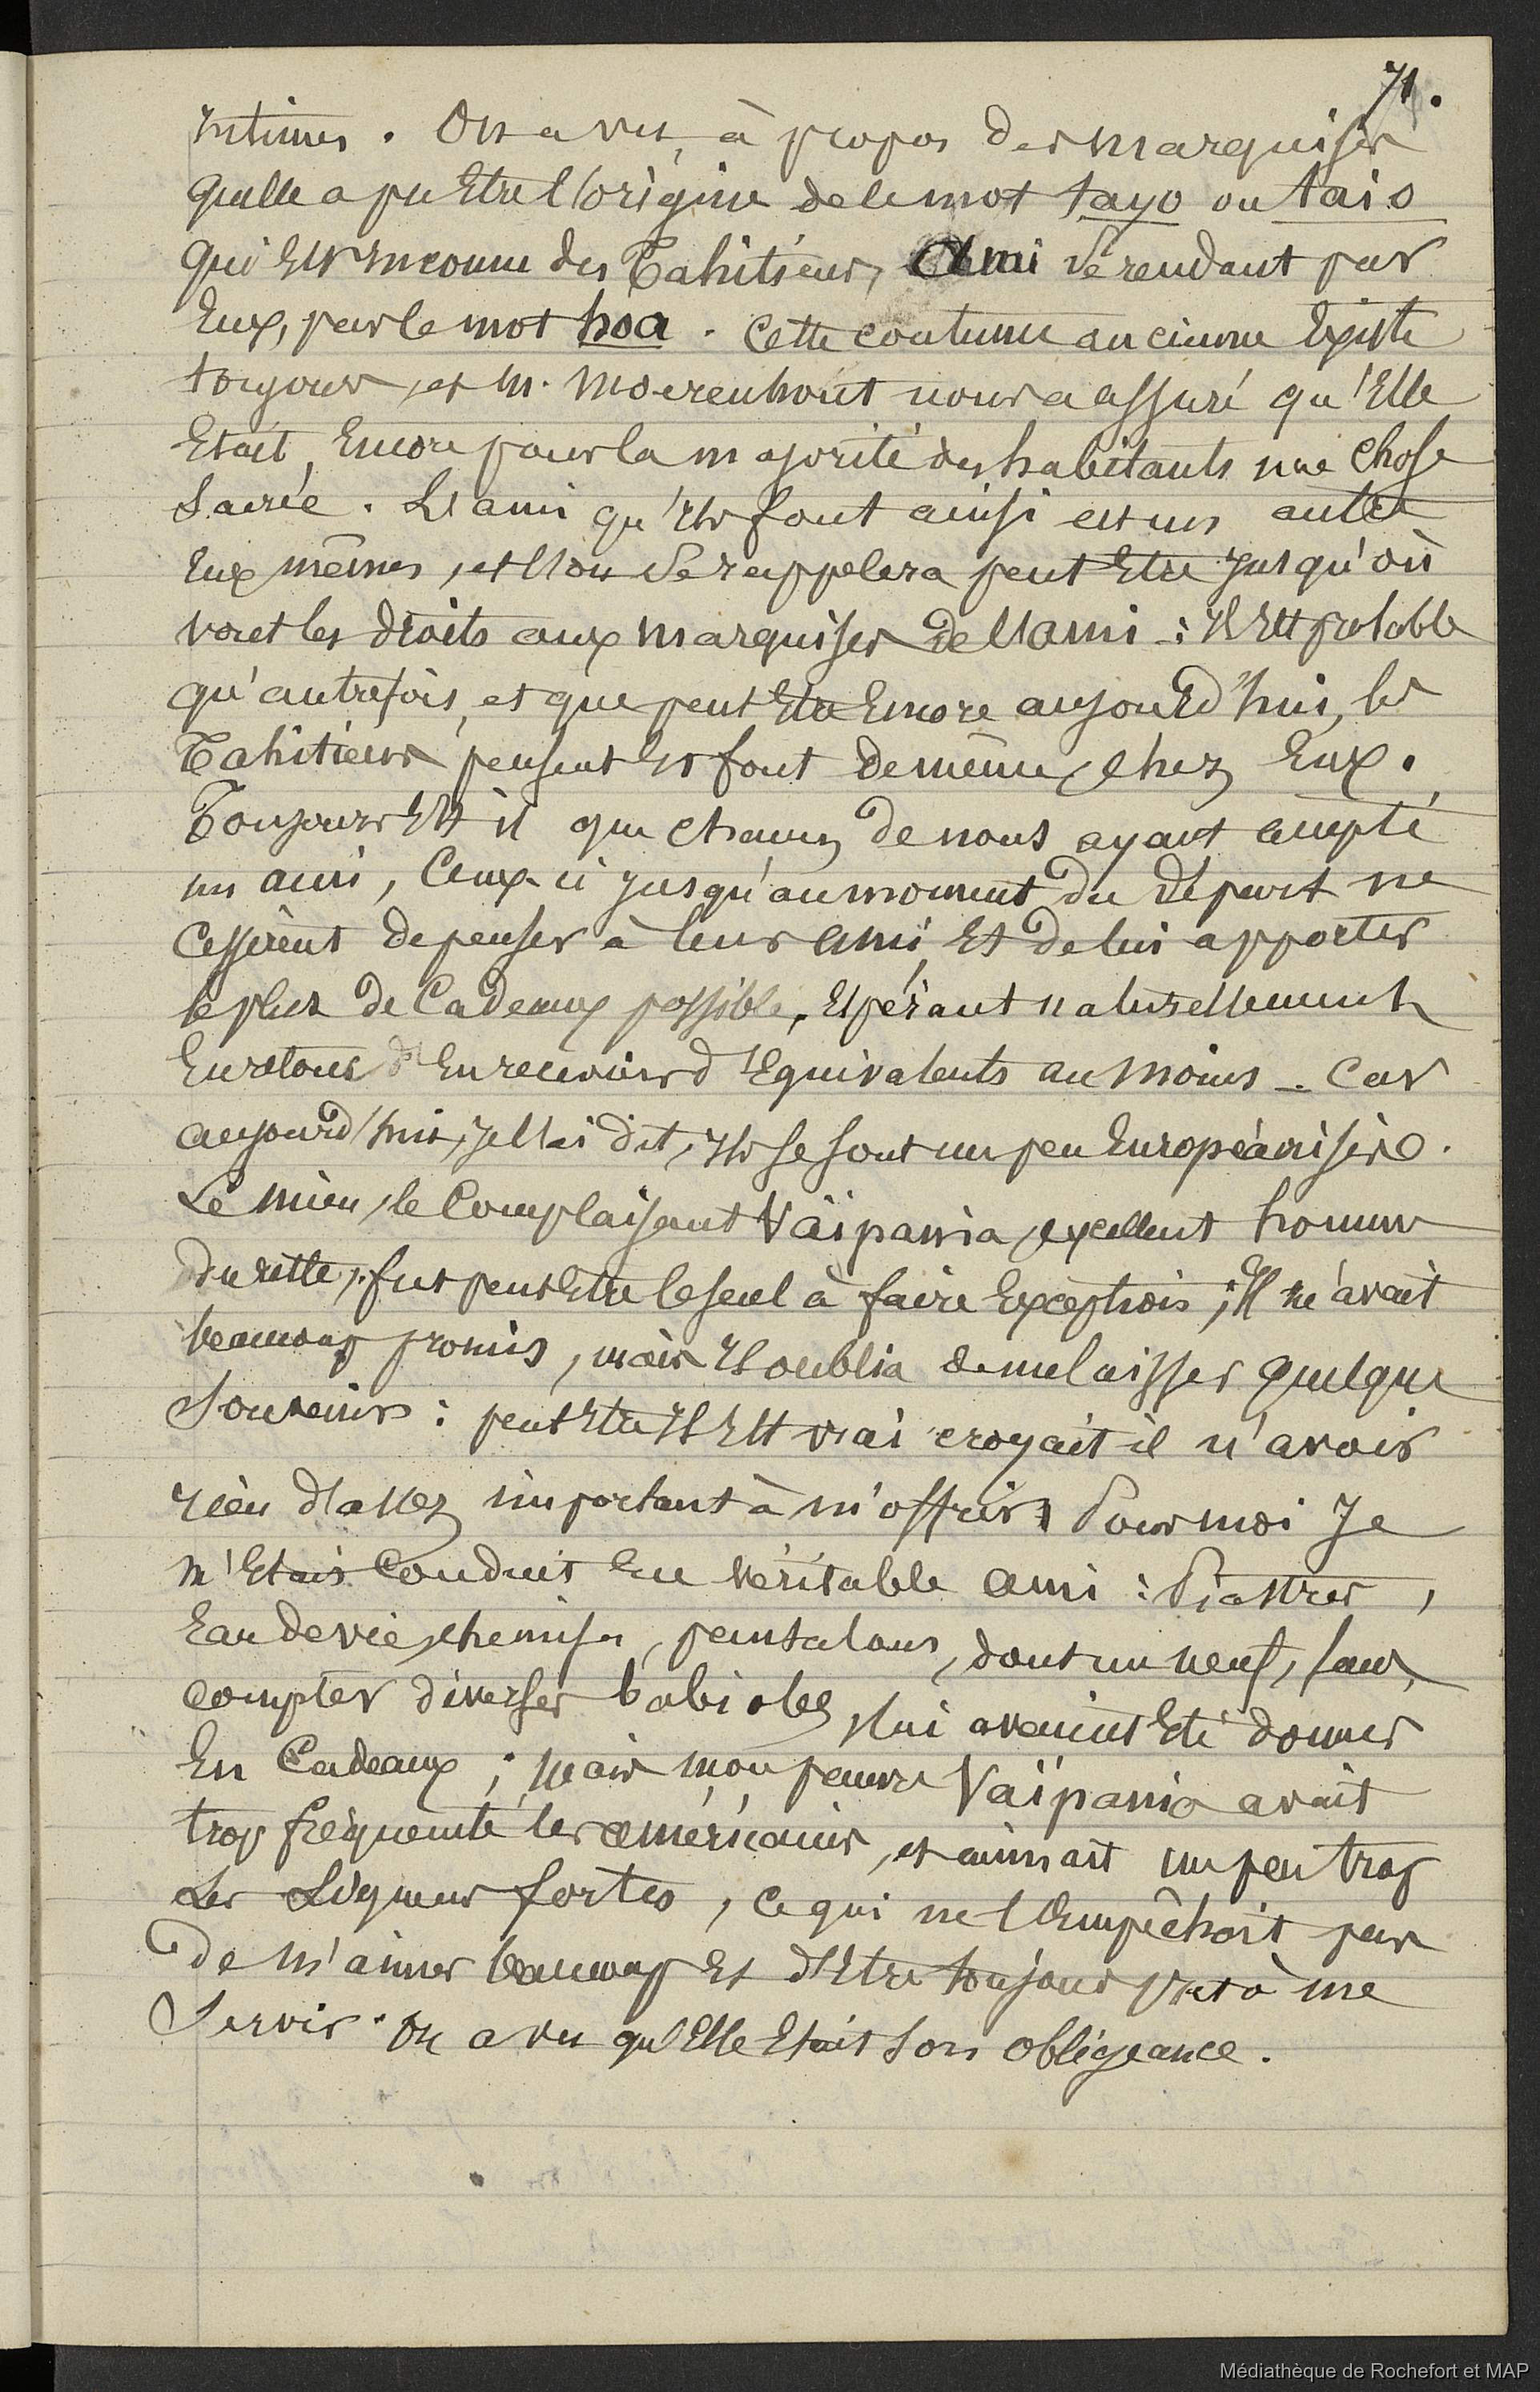 71.
intimes. On a vu, à propos des marquises
quelle a pu être l'origine de le mot tayo ou taio
qui est inconnu des Tahitiens, Ami se rendant par
Eux, par le mot hoa. Cette coutume ancienne Existe
toujours, et M. Moerenhout nous a assuré qu'Elle
Etait, Encore pour la majorité des habitants une chose
Sacrée. L'ami qu'ils font ainsi est un autre
Eux mêmes, et l'on se rappelera peut Etre jusqu'où
vont les droits aux marquises de l'ami : il Est probable
qu'autrefois, et que peut Etre Encore aujourd'hui, les
Tahitiens pensent Et font de même chez Eux.
Toujours Est il que chacun de nous ayant accepté
un ami, Ceux-ci jusqu'au moment du départ ne
Cessèrent de penser à leur ami, Et de lui apporter
le plus de Cadeaux possible, Espérant naturellement
En retour d'En recevoir d'Equivalents au moins - Car
aujourd'hui, je l'ai dit, ils se sont un peu Européanisés.
Le mien, le Complaisant Vaïpania, excellent homme
du reste, fut peut Etre le seul à faire Exception ; Il m'avait
beaucoup promis, mais il oublia de me laisser quelque
Souvenir : peut Etre il Est vrai croyait il n'avoir
rien d'assez important à m'offrir. Pour moi Je
m'Etais Conduit En véritable ami : Piastres,
Eau de vie, chemises, pantalons, dont un neuf, sans
compter diverses babioles, lui avaient Eté donnés
En Cadeaux ; mais mon pauvre Vaïpania avait
trop fréquenté les américains, et aimait un peu trop
Les Liqueurs fortes, Ce qui ne l'Empêchait pas
de m'aimer beaucoup Et d'Etre toujours prêt à me
Servir. On a vu qu'Elle Etait son obligeance.
Médiathèque de Rochefort et MAP